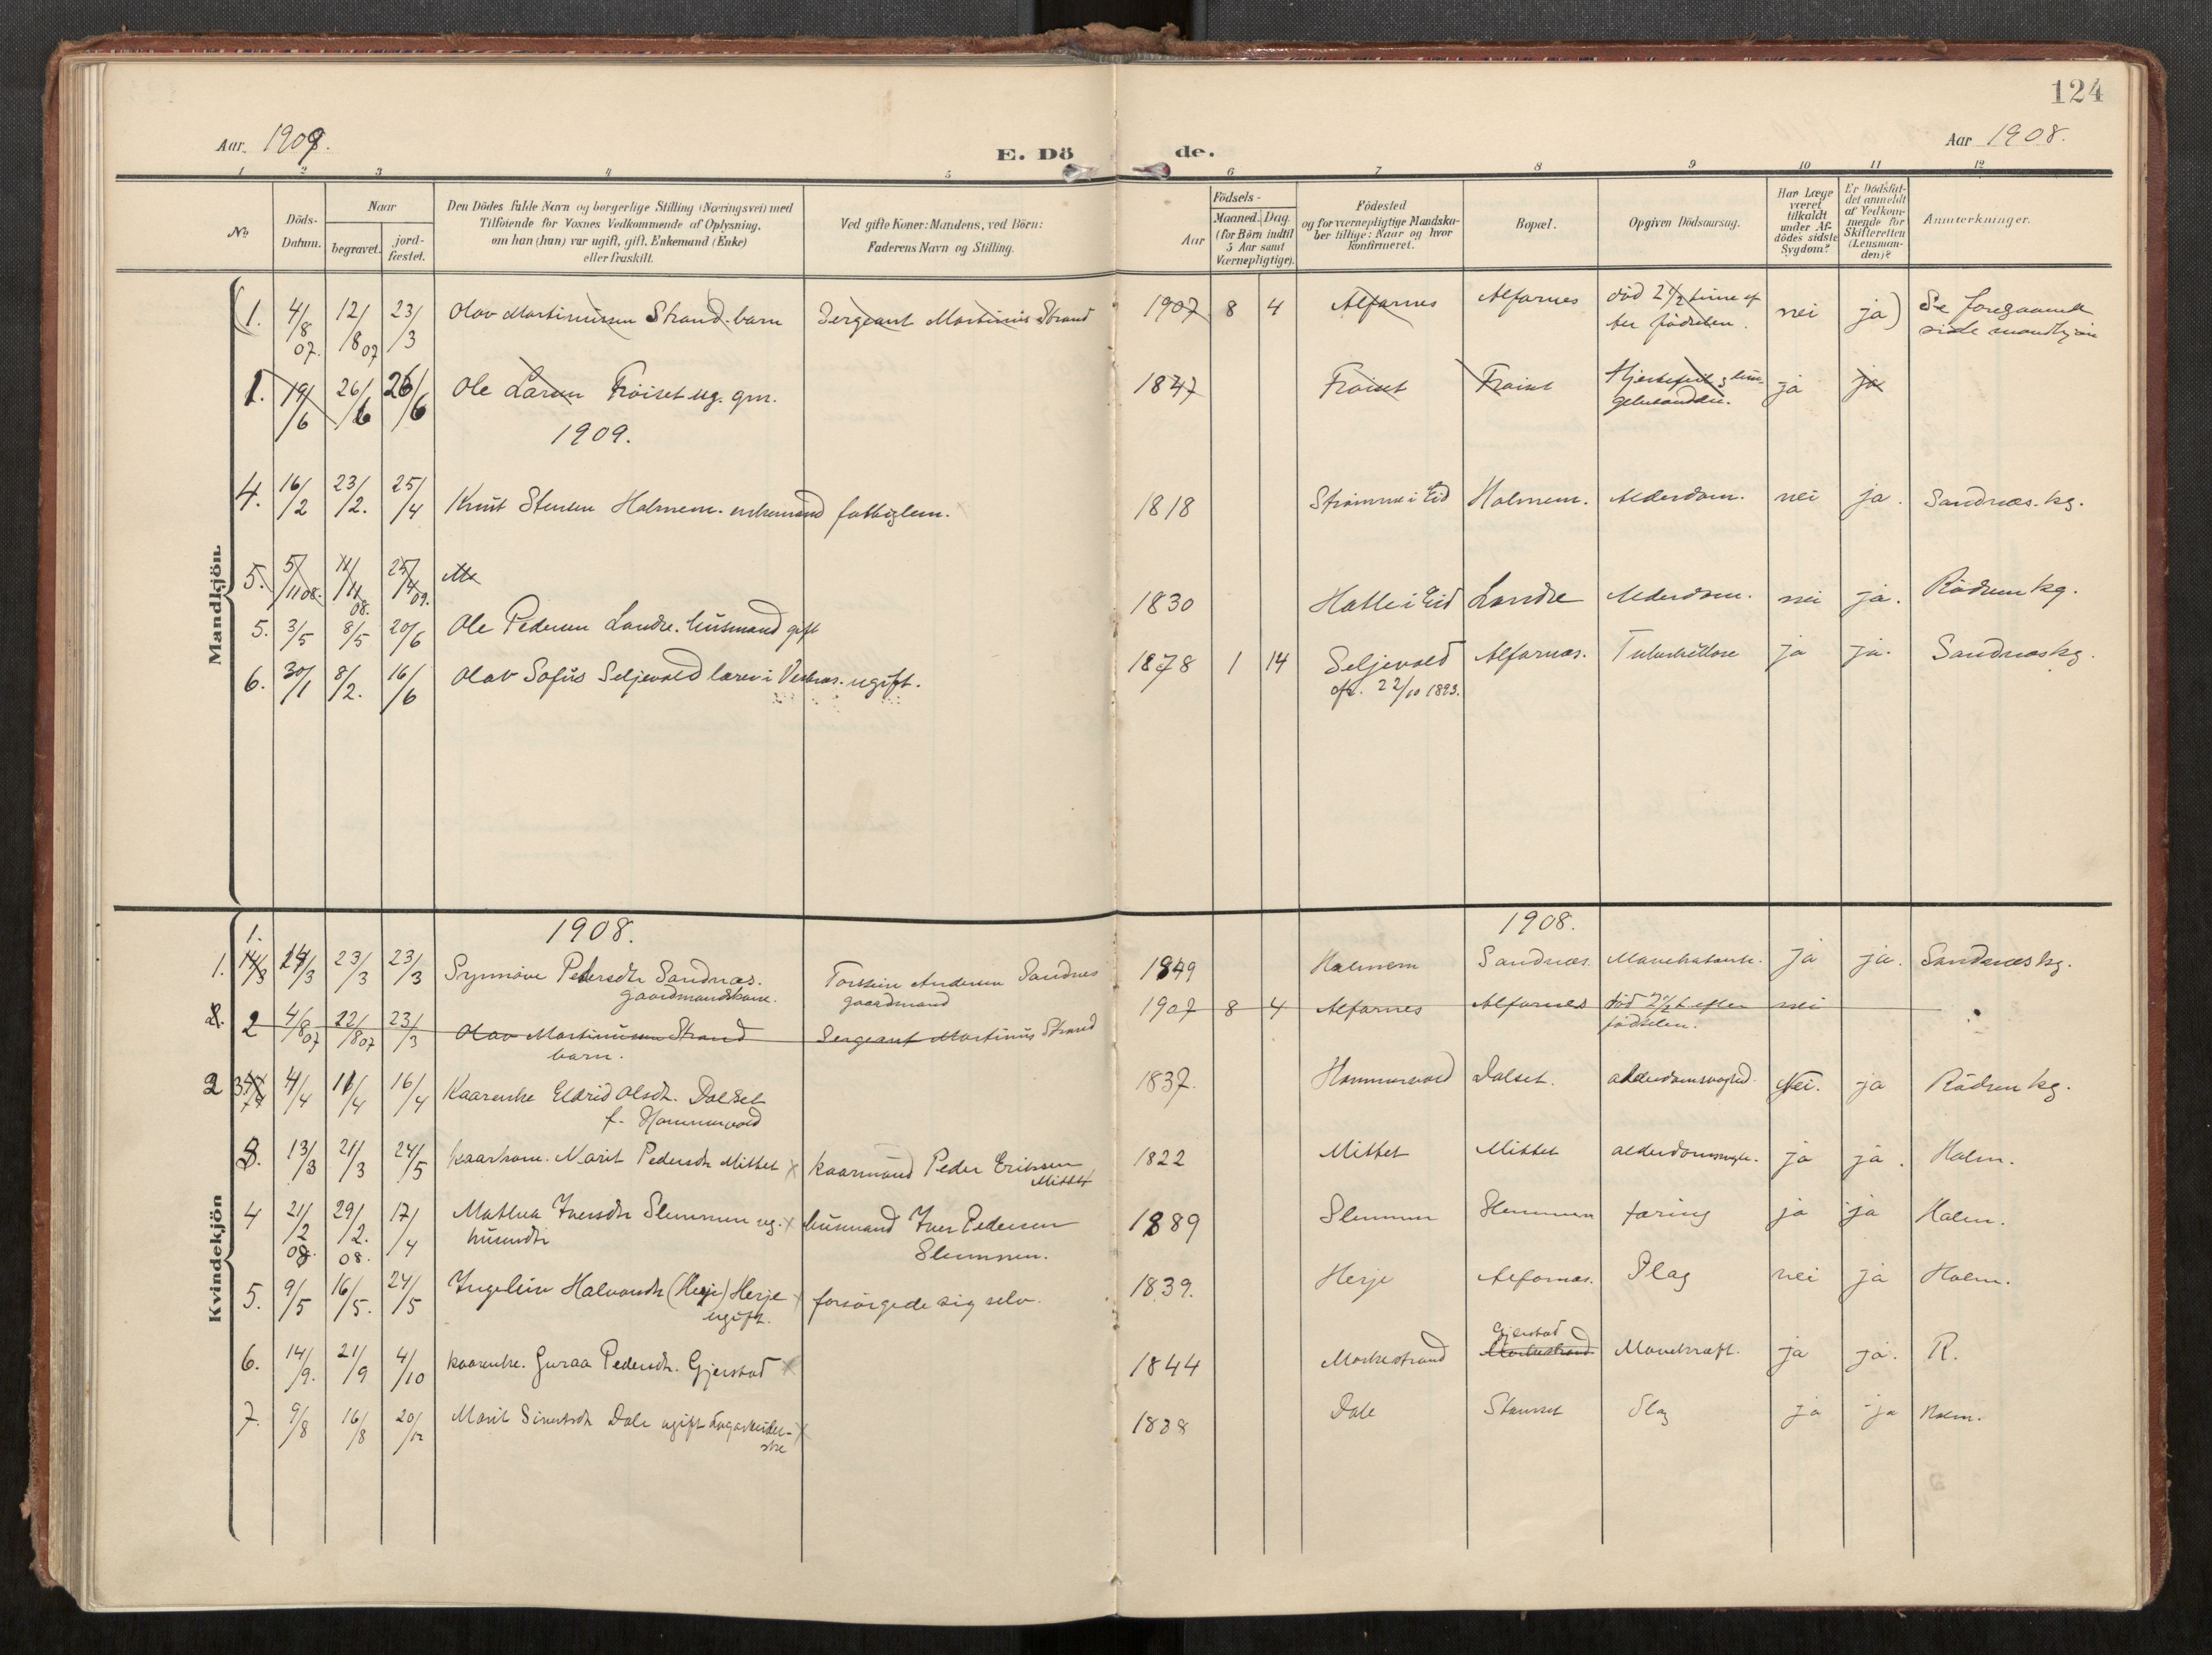 124
Aar. 1909.
E. Dö de.
Aar 1908.
1 2 3 4 5 6 7 8 9 10 11 12
No.
Döds-Datum.
Naar
begravet.
jord-fæstet.
Den Dödes fulde Navn og borgerlige Stilling (Næringsvei) med
Tilföiende for Voxnes Vedkommende af Oplysning,
om han (hun) var ugift, gift, Enkemand (Enke)
eller fraskilt.
Ved gifte Koner: Mandens, ved Börn:
Faderens Navn og Stilling.
Födsels-
Aar
Maaned. Dag.
(for Börn indtil
5 Aar samt
Værnepligtige).
Födested
og for værnepligtige Mandska-
ber tillige: Naar og hvor
konfirmeret.
Bopæl.
Opgiven Dödsaarsag.
Har Læge
været
tilkaldt
under Af-
dödes sidste
Sygdom?
Er Dödsfal-
det anmeldt
af Vedkom-
mende for
Skifteretten
(Lensman-
den)?
Anmærkninger.
Mandkjön.
(1. 4/8 07. 12/8 07 23/3 Olav Martinussen Strand. barn Sergeant Martinus Strand 1907 8 4 Alfarnes Alfarnes död 2 1/2 time ef
ter födselen. nei ja) Se foregaaende
side mandkjön
1. 19/6 26/6 26/6 Ole Larsen Fröiset ug. gm. 1847 Fröiset Fröiset ja ja
1909.
4. 16/2 23/2. 25/4 Knut Stensen Holmem. enkemand fattiglem. 1818 Strömme i Eid Holmem. Alderdom. nei ja. Sandnæs. kg.
5. 5/11 08. 11/11 08. 25/4 09.
5. 3/5 8/5 20/6 Ole Pedersen Landre. husmand gift 1830 Hatle i Eid Landre Alderdom. nei ja. Rödven kg.
6. 30/1 8/2. 16/6 Olav Sofus Seljevold lærer i ugift. 1878 1 14 Seljevold Alfarnæs. Tuberkulose ja ja. Sandnæs kg.
22/10 1893.
Kvindekjön
1908. 1908.
1.
1. 14/3 14/3 23/3 23/3 Synnöve Pedersdtr Sandnæs. Torstein Andersen Sandnes 1849 Holmem Sandnæs. ja ja. Sandnæs kg.
gaardmandskone. gaardmand
2 4/8 07 22/8 07 23/3 Olav Martinussen Strand Sergeant Martinus Strand 1907 8 4 Alfarnes Alfarnes död 2 1/2 t. efter nei
barn. födselen.
2 4/4 11/4 16/4 Kaarenke Eldrid Olsdtr. Dalset 1837. Hammervold Dalset. alderdomssvaghed. Nei. ja Rödven kg.
f. Hammervold
3. 13/3 21/3 24/5 kaarkone. Marit Pedersdtr Mittet x kaarmand Peder Eriksen 1822 Mittet Mittet ja ja. Holm.
Mittet
4 21/2 08. 29/2. 08. 17/4 Mathea Iversdtr Slemmen ug. x husmand Iver Pedersen 1889 Slemmen Slemmen tæring ja ja Holm.
husmdtr Slemmen.
5. 9/5 16/5. 24/5 Ingelein Halvorsdtr (Herje) Herje x forsörgede sig selv. 1839. Herje Alfarnæs. Slag nei ja Holm.
ugift.
6. 14/9. 21/9 4/10 kaarenke. Guraa Pedersdtr. Gjerstad x 1844 Morkestrand Gjerstad Morkestrand Mavekræft. ja ja. R.
7. 9/8 16/8 20/12 Marit Sivertsdtr Dale ugift dagarbeider- x 1838 Dale Slag ja ja Holm.
ske